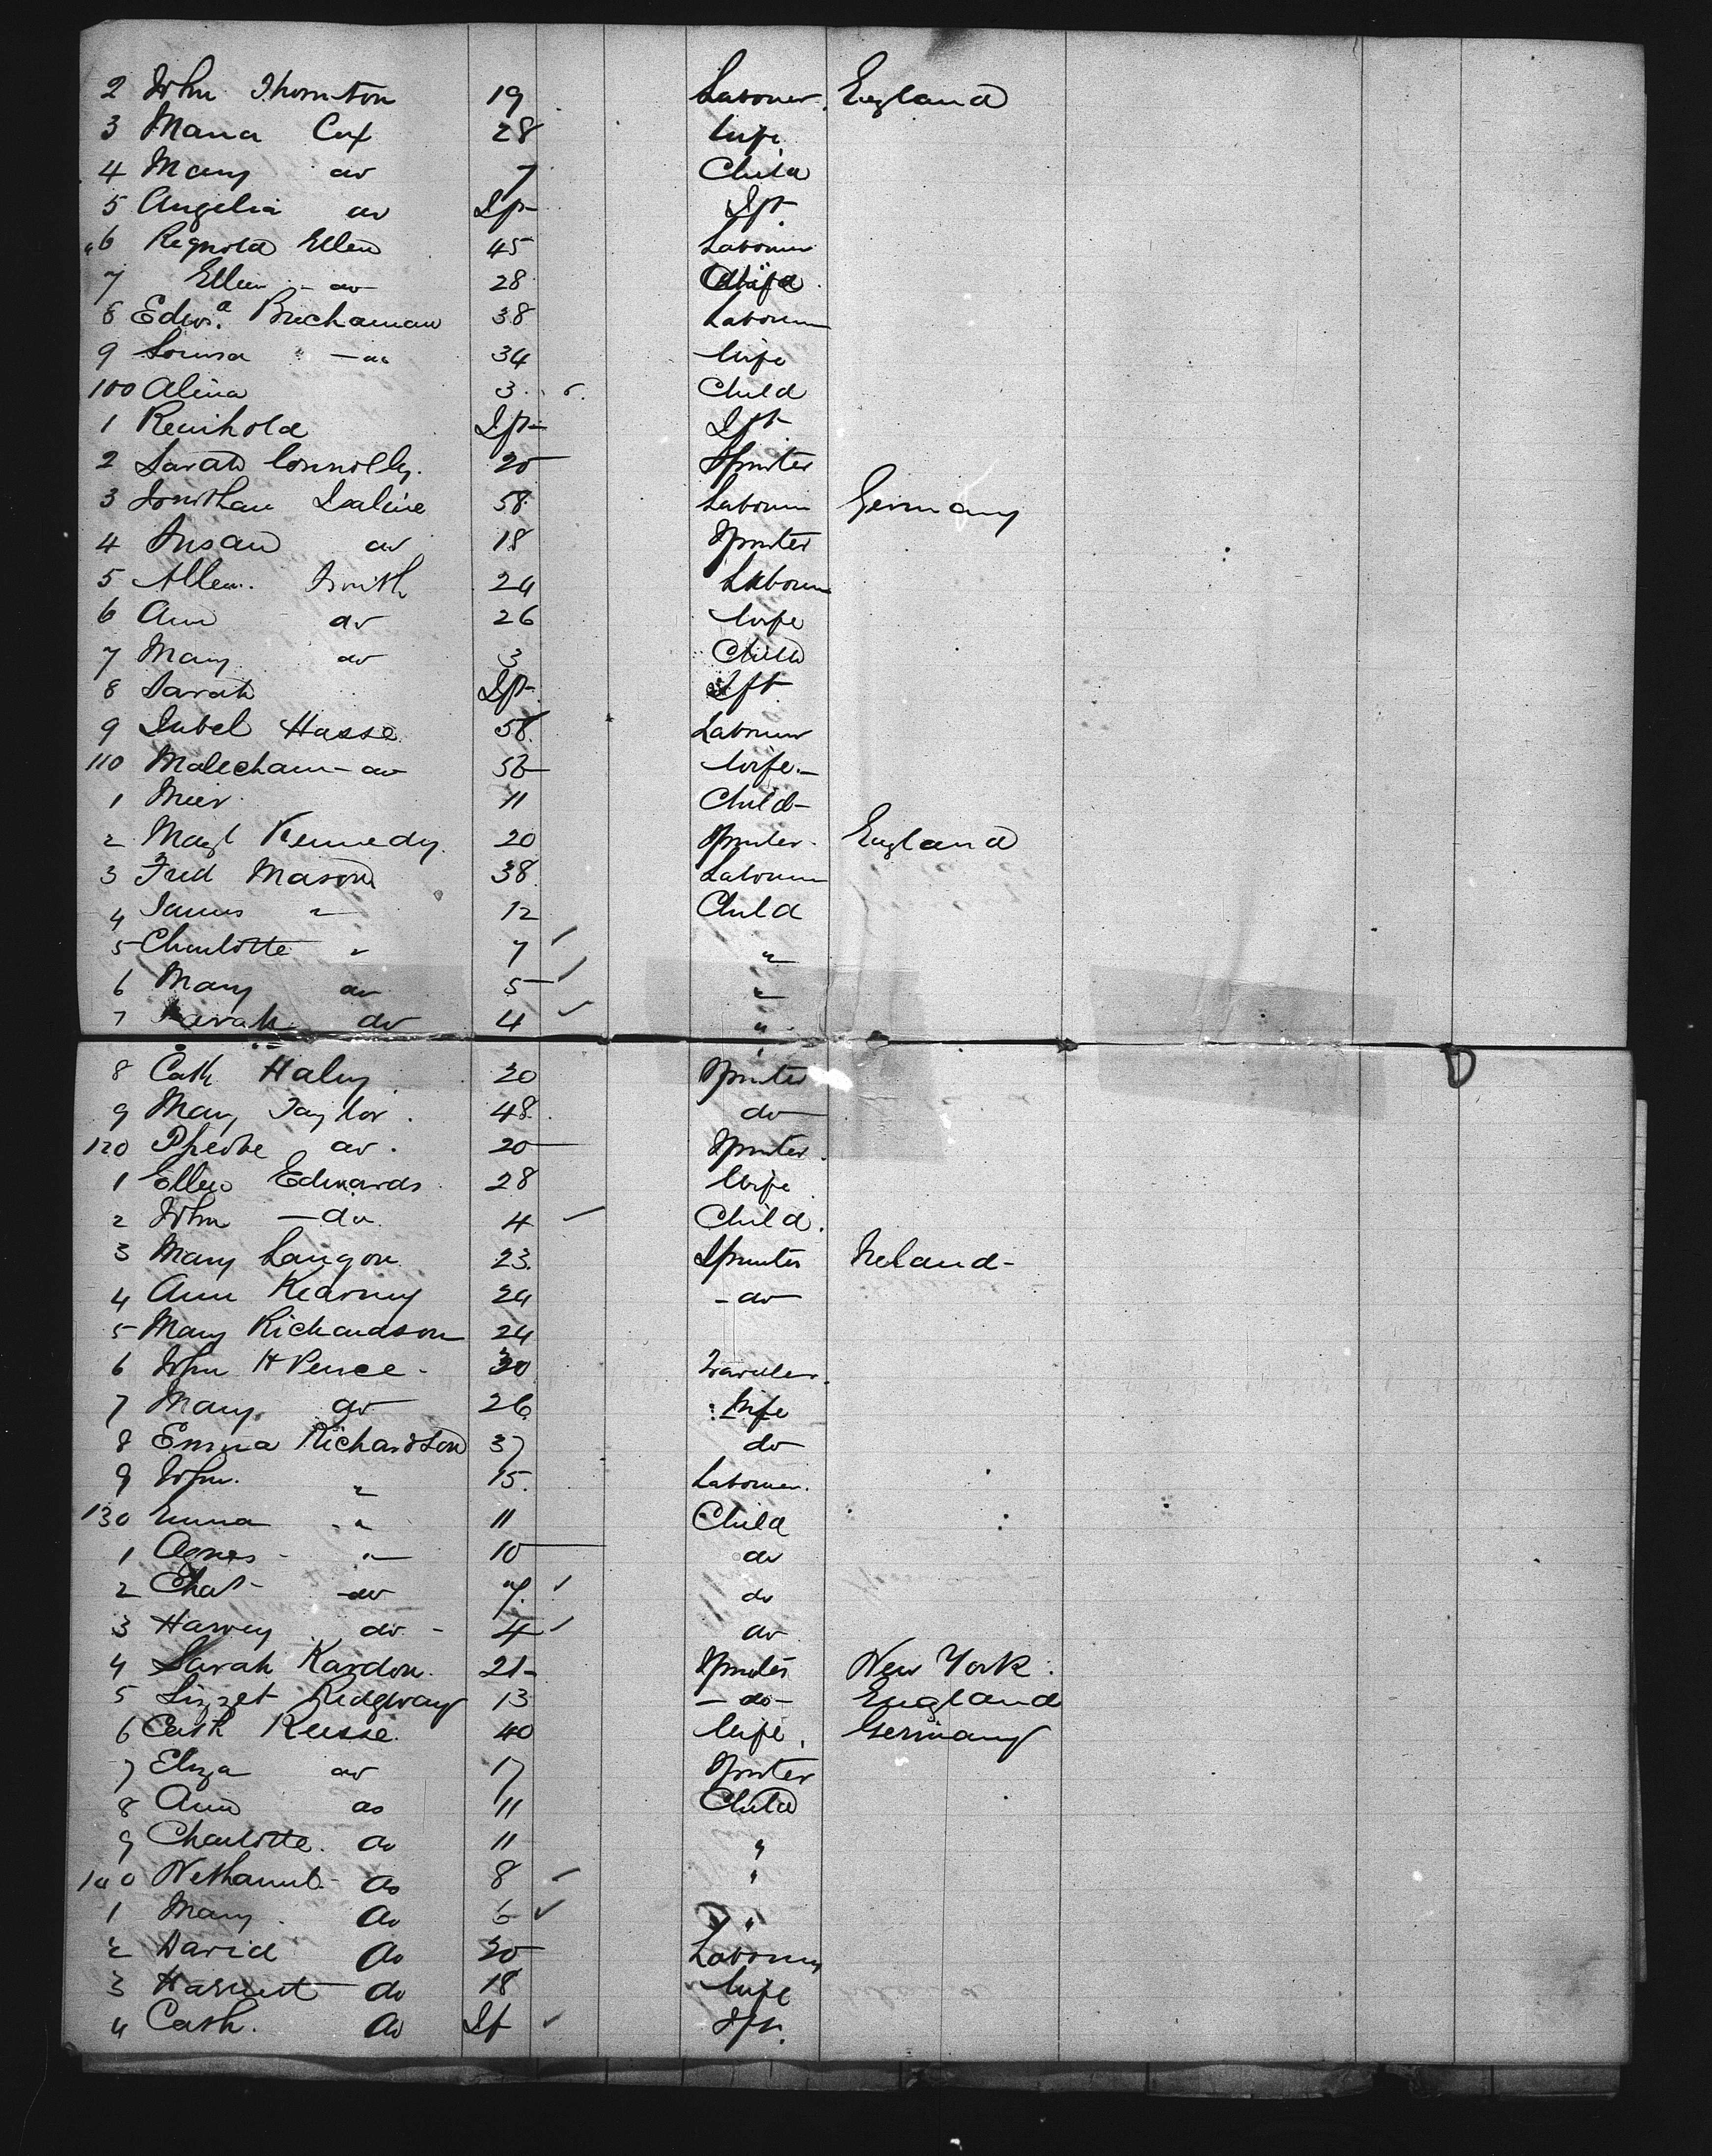 2 John Thornton 19 Labourer England
3 Maria Cox 28 Wife
4 Mary do 7 Child
5 Angelia do Inft Inft
6 Reynold Ellen 45 Labourer
7 Ellen do 28 Wife
8 Edwd. Buchanan 38 Labourer
9 Louisa do 34 Wife
100 Alina 3 Child
1 Reinhold Inft Inft
2 Sarah Connolly 20 Spinster
3 Jonathan 58 Labourer Germany
4 Susan do 18 Spinster
5 Allen Smith 24 Labourer
6 Ann do 26 Wife
7 Mary do 3 Child
8 Sarah Inft Inft
9 Isabel Hasse 58 Labourer
110 Malecham do Wife
1 Meir 11 Child
2 Magt Kennedy 20 Spinster England
3 Fred Mason 38 Labourer
4 James " 12 Child
5 Charlotte " 7 "
6 Mary do 5 "
7 Sarah do 4 "
8 Cath Haley 20 Spinster
9 Mary Taylor 48 do
120 Pheobe do 20 Spinster
1 Ellen Edwards 28 Wife
2 John do 4 Child
3 Mary Langon 23 Spinster Ireland
4 Ann Kearney 24 do
5 Mary Richardson 24
6 John H Peirce 30
7 Mary do 26 Wife
8 Emma Richardson 37 do
9 John " 15 Labourer
130 Emma " 11 Child
1 Agnes " 10 do
2 Chas do 7 do
3 Harvey do 4 do
4 Sarah Kardon 21 Spinster New York
5 Lizzet Ridgway 13 do England
6 Cath Reisse 40 Wife Germany
7 Eliza do 17 Spinster
8 Ann do 11 Child
9 Charlotte do 11 "
140 Nethanul do 8 "
1 Mary do 6 "
2 David do 20 Labourer
3 Harriet do 18 Wife
4 Cath. do Inf Inft